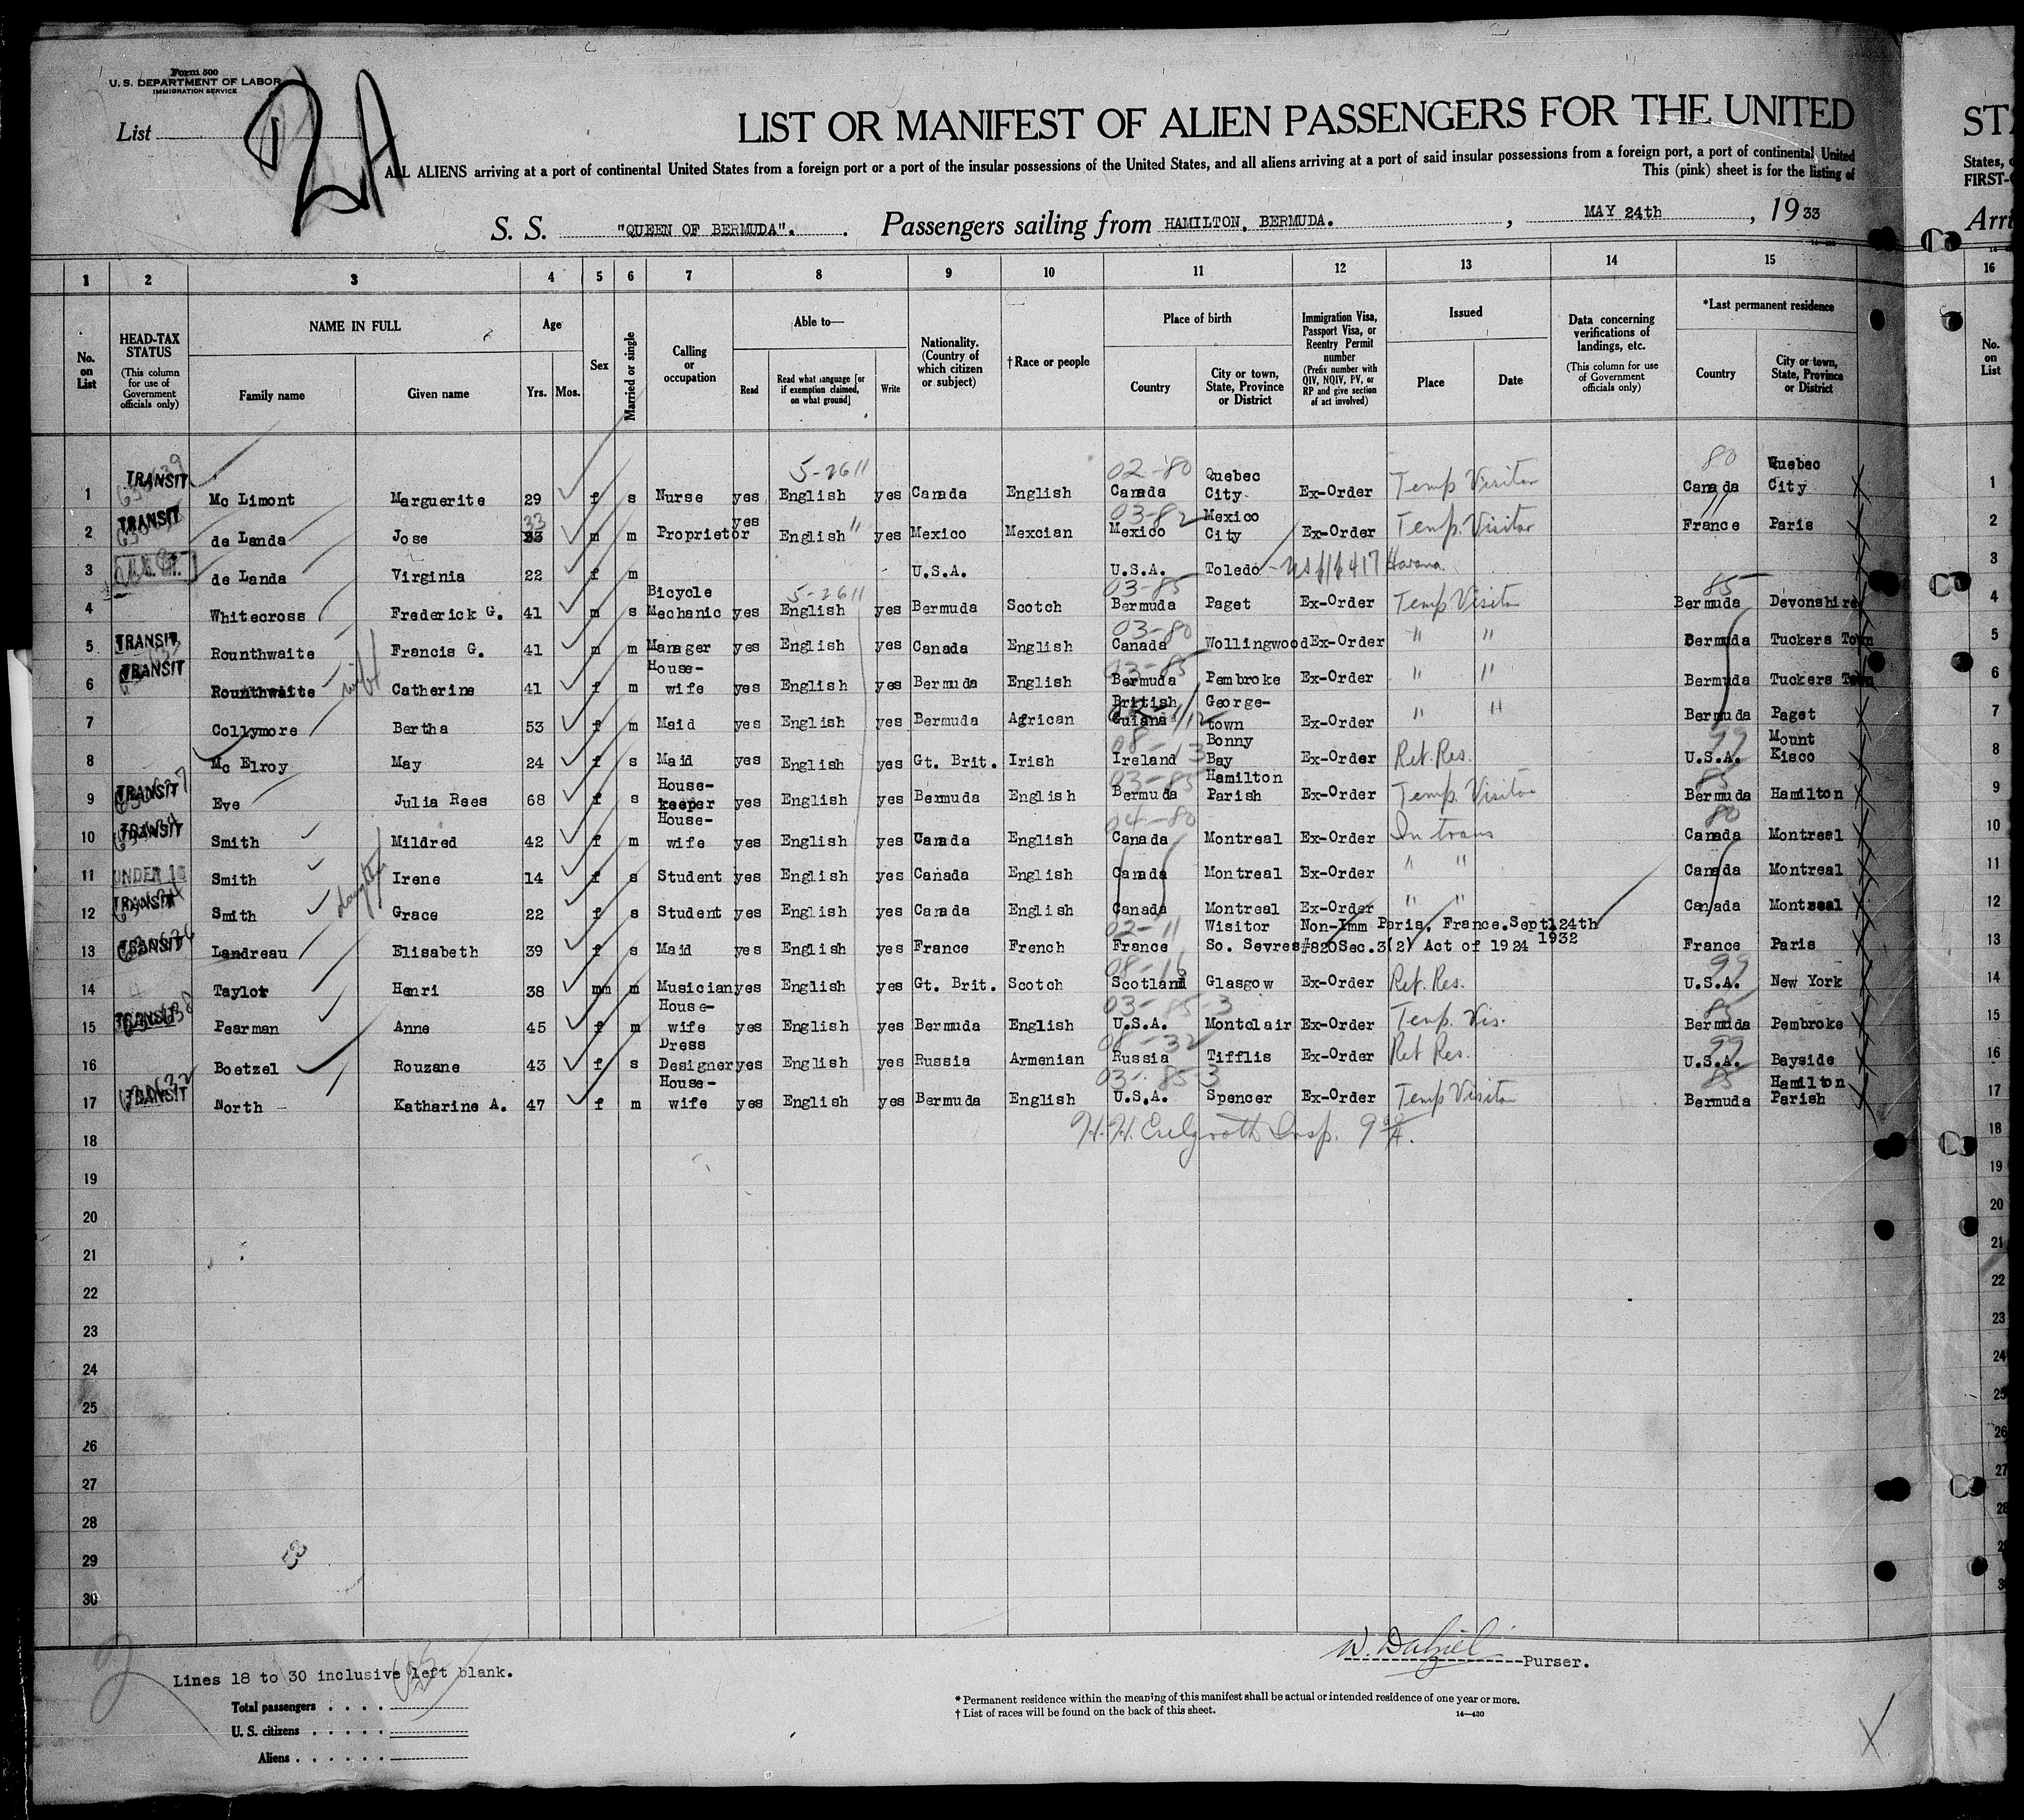 Form 500
U. S. DEPARTMENT OF LABOR
IMMIGRATION SERVICE
List
2A
LIST OR MANIFEST OF ALIEN PASSENGERS FOR THE UNITED
ST
ALL ALIENS arriving at a port of continental United States from a foreign port or a port of the insular possessions of the United States, and all aliens arriving at a port of said insular possessions from a foreign port, a port of continental United
States,
This (pink) sheet is for the listing of
FIRST-
S. S. "QUEEN OF BERMUDA". Passengers sailing from HAMILTON, BERMUDA. , MAY 24th , 1933
Arri
1 2 3 4 5 6 7 8 9 10 11 12 13 14 15 16
No. on List
HEAD-TAX STATUS (This column for use of Government officials only)
NAME IN FULL
Family name Given name
Age
Yrs. Mos.
Sex
Married or single
Calling or occupation
Able to—
Read Read what language [or if exemption claimed, on what ground] Write
Nationality. (Country of which citizen or subject)
†Race or people
Place of birth
Country City or town, State, Province or District
Immigration Visa, Passport Visa, or Reentry Permit number (Prefix number with QIV, NQIV, PV, or RP and give section of act involved)
Issued
Place Date
Data concerning verifications of landings, etc. (This column for use of Government officials only)
*Last permanent residence
Country City or town, State, Province or District
No. on List
1 TRANSIT Mc Limont Marguerite 29 f s Nurse yes English 5-2611 yes Canada English 02-80 Canada Quebec City Ex-Order Temp Visitor 80 Canada Quebec City 1
2 TRANSIT de Landa Jose 33 m m Proprietor yes English " yes Mexico Mexcian 03-82 Mexico Mexico City Ex-Order Temp. Visitor " France Paris 2
3 de Landa Virginia 22 f m U.S.A. U.S.A. Toledo Havana 3
4 Whitecross Frederick G. 41 m s Bicycle Mechanic yes English 5-2611 yes Bermuda Scotch 03-85 Bermuda Paget Ex-Order Temp Visitor 85 Bermuda Devonshire 4
5 TRANSIT Rounthwaite Francis G. 41 m m Manager yes English yes Canada English 03-80 Canada Wollingwood Ex-Order " " Bermuda Tuckers Town 5
6 TRANSIT Rounthwaite wife Catherine 41 f m House-wife yes English yes Bermuda English 03-85 Bermuda Pembroke Ex-Order " " Bermuda Tuckers Town 6
7 Collymore Bertha 53 f m Maid yes English yes Bermuda Agrican British Guiana George-town Ex-Order " " Bermuda Paget 7
8 Mc Elroy May 24 f s Maid yes English yes Gt. Brit. Irish 08-13 Ireland Bonny Bay Ex-Order Ret. Res. 99 U.S.A. Mount Kisco 8
9 TRANSIT Eve Julia Rees 68 f s House-keeper yes English yes Bermuda English 03-85 Bermuda Hamilton Parish Ex-Order Temp. Visitor 85 Bermuda Hamilton 9
10 TRANSIT Smith Mildred 42 f m House-wife yes English yes Canada English 04-80 Canada Montreal Ex-Order In trans 80 Canada Montreal 10
11 UNDER 16 Smith Irene 14 f s Student yes English yes Canada English Canada Montreal Ex-Order " " Canada Montreal 11
12 TRANSIT Smith daughter Grace 22 f s Student yes English yes Canada English Canada Montreal Ex-Order " " Canada Montreal 12
13 TRANSIT Landreau Elisabeth 39 f s Maid yes English yes France French 02-11 France So. Sevres Wisitor Non-Imm Paris, France. Sept124th 1932 #820Sec.3(2) Act of 1924 France Paris 13
14 Taylor Henri 38 mm m Musician yes English yes Gt. Brit. Scotch 08-16 Scotland Glasgow Ex-Order Ret. Res. 99 U.S.A. New York 14
15 TRANSIT Pearman Anne 45 f m House-wife yes English yes Bermuda English 03-85-3 U.S.A. Montclair Ex-Order Temp. Vis. 85 Bermuda Pembroke 15
16 Boetzel Rouzane 43 f s Dress Designer yes English yes Russia Armenian 08-32 Russia Tifflis Ex-Order Ret Res. 99 U.S.A. Bayside 16
17 TRANSIT North Katharine A. 47 f m House-wife yes English yes Bermuda English 03-85-3 U.S.A. Spencer Ex-Order Temp Visitor 85 Bermuda Hamilton Parish 17
18 H.H. Insp. 18
19 19
20 20
21 21
22 22
23 23
24 24
25 25
26 26
27 27
28 28
29
30
W. Dalziel
Purser.
Lines 18 to 30 inclusive left blank.
Total passengers . . . .
U. S. citizens . . . . .
Aliens . . . . . .
* Permanent residence within the meaning of this manifest shall be actual or intended residence of one year or more.
† List of races will be found on the back of this sheet.
14—430